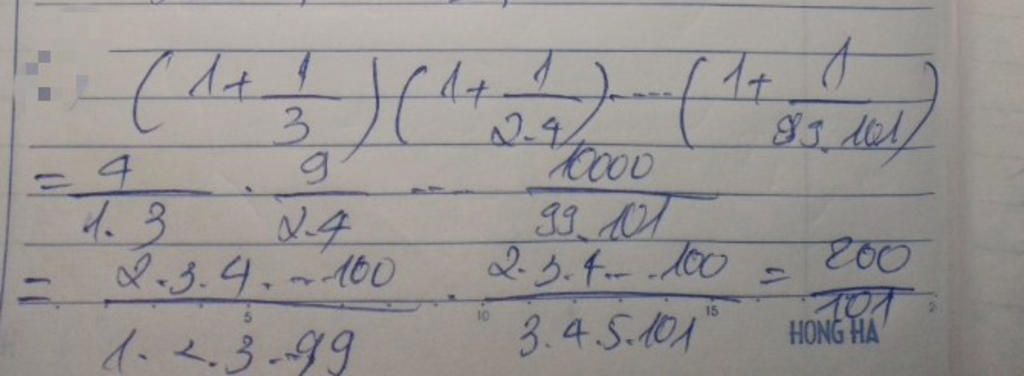 (1 + 1/3) (1 + 1/2.4) ---- (1 + 1/99.101)
= 4/1.3 . 9/2.4 --- 10000/99.101
= 2.3.4. -- 100/1.2.3.--99 . 2.3.4-- .100/3.4.5.101 = 200/101
5 10 15
HONG HA